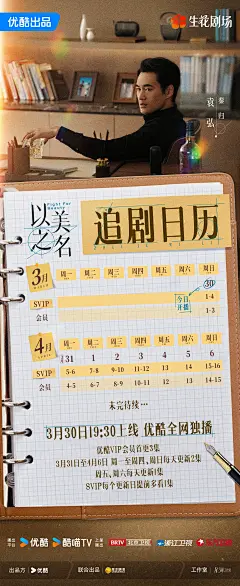 优酷出品
生花剧场
袁弘
饰
以美之名
Fight For Beauty
追剧日历
3月 周一 周二 周三 周四 周五 周六 周日
30
SVIP 今日开播 1-4
会员 1-3
4月 周一 周二 周三 周四 周五 周六 周日
31 1 2 3 4 5 6
SVIP 5-6 7-8 9-10 11-12 13 14 15-16
会员 4-5 6-7 8-9 10-11 12 13 14-15
未完待续···
3月30日19:30上线 优酷全网独播
优酷VIP会员首更3集
3月31日至4月6日 周一至周四、周日每天更新2集
周五、周六每天更新1集
SVIP每个更新日提前多看1集
优酷 优酷喵TV BRTV 北京卫视 浙江卫视
出品方 优酷 联合出品 工作室